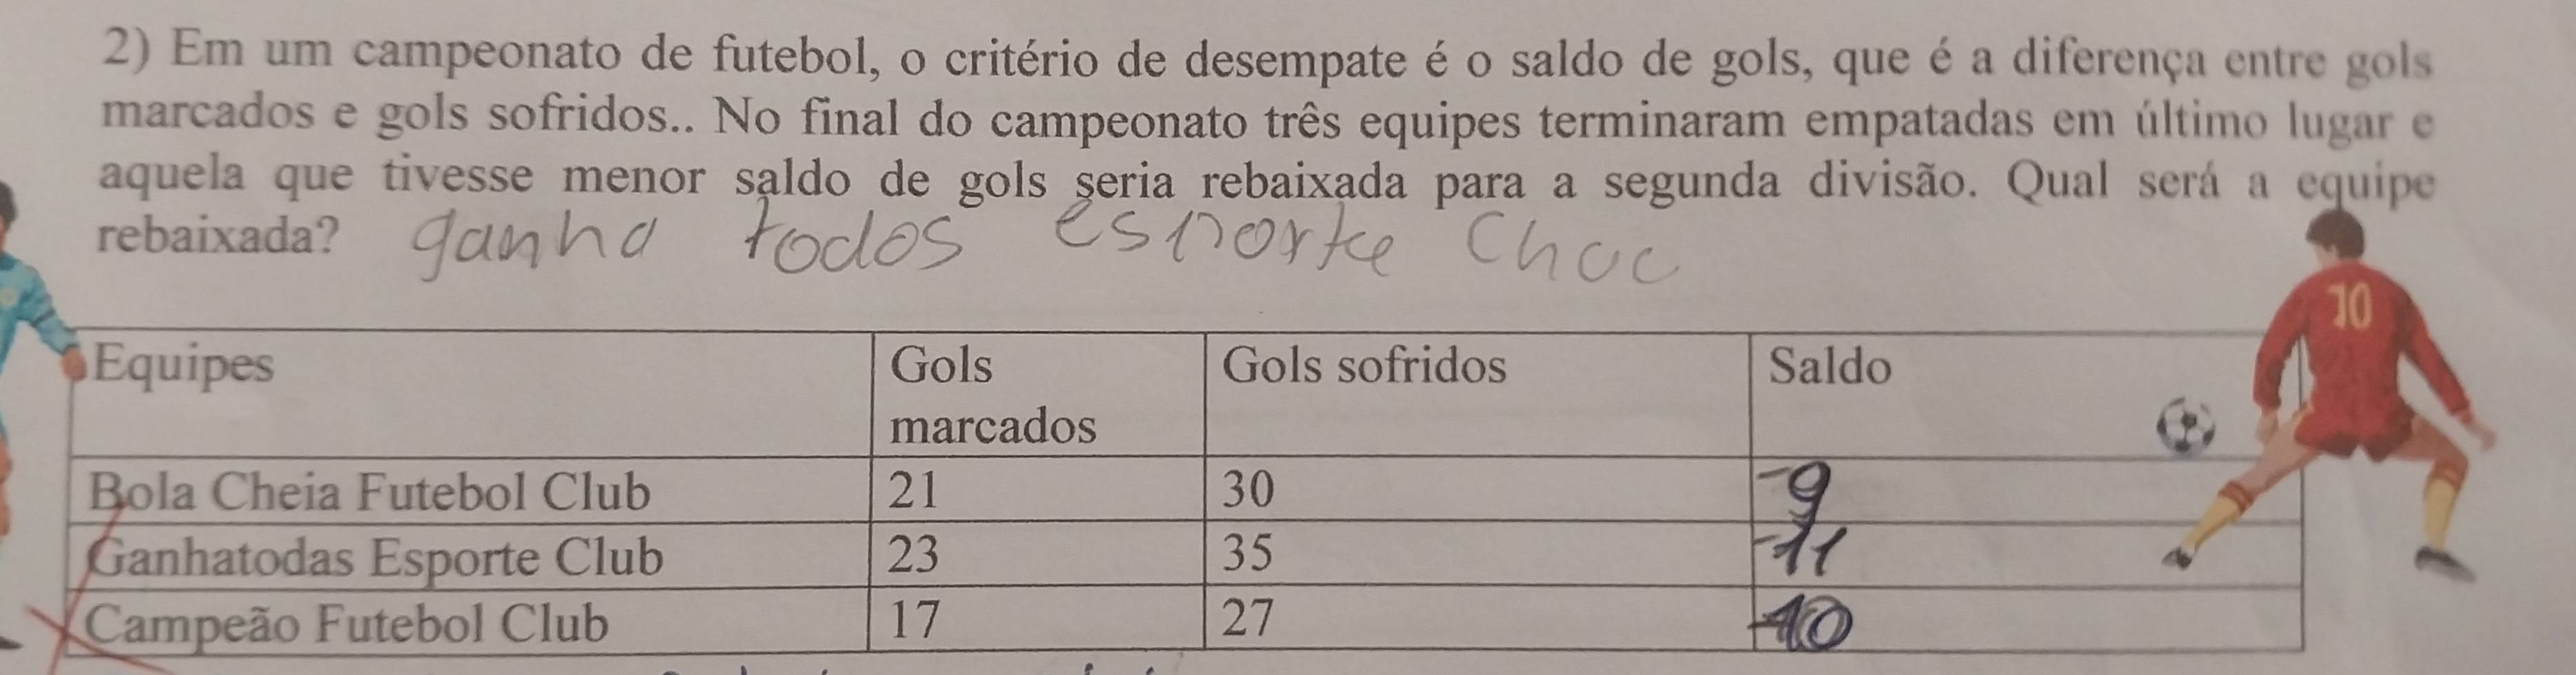 2) Em um campeonato de futebol, o critério de desempate é o saldo de gols, que é a diferença entre gols
marcados e gols sofridos.. No final do campeonato três equipes terminaram empatadas em último lugar e
aquela que tivesse menor saldo de gols seria rebaixada para a segunda divisão. Qual será a equipe
rebaixada? ganha todos esporte
Equipes Gols marcados Gols sofridos Saldo
Bola Cheia Futebol Club 21 30 -9
Ganhatodas Esporte Club 23 35 -11
Campeão Futebol Club 17 27 -10
10